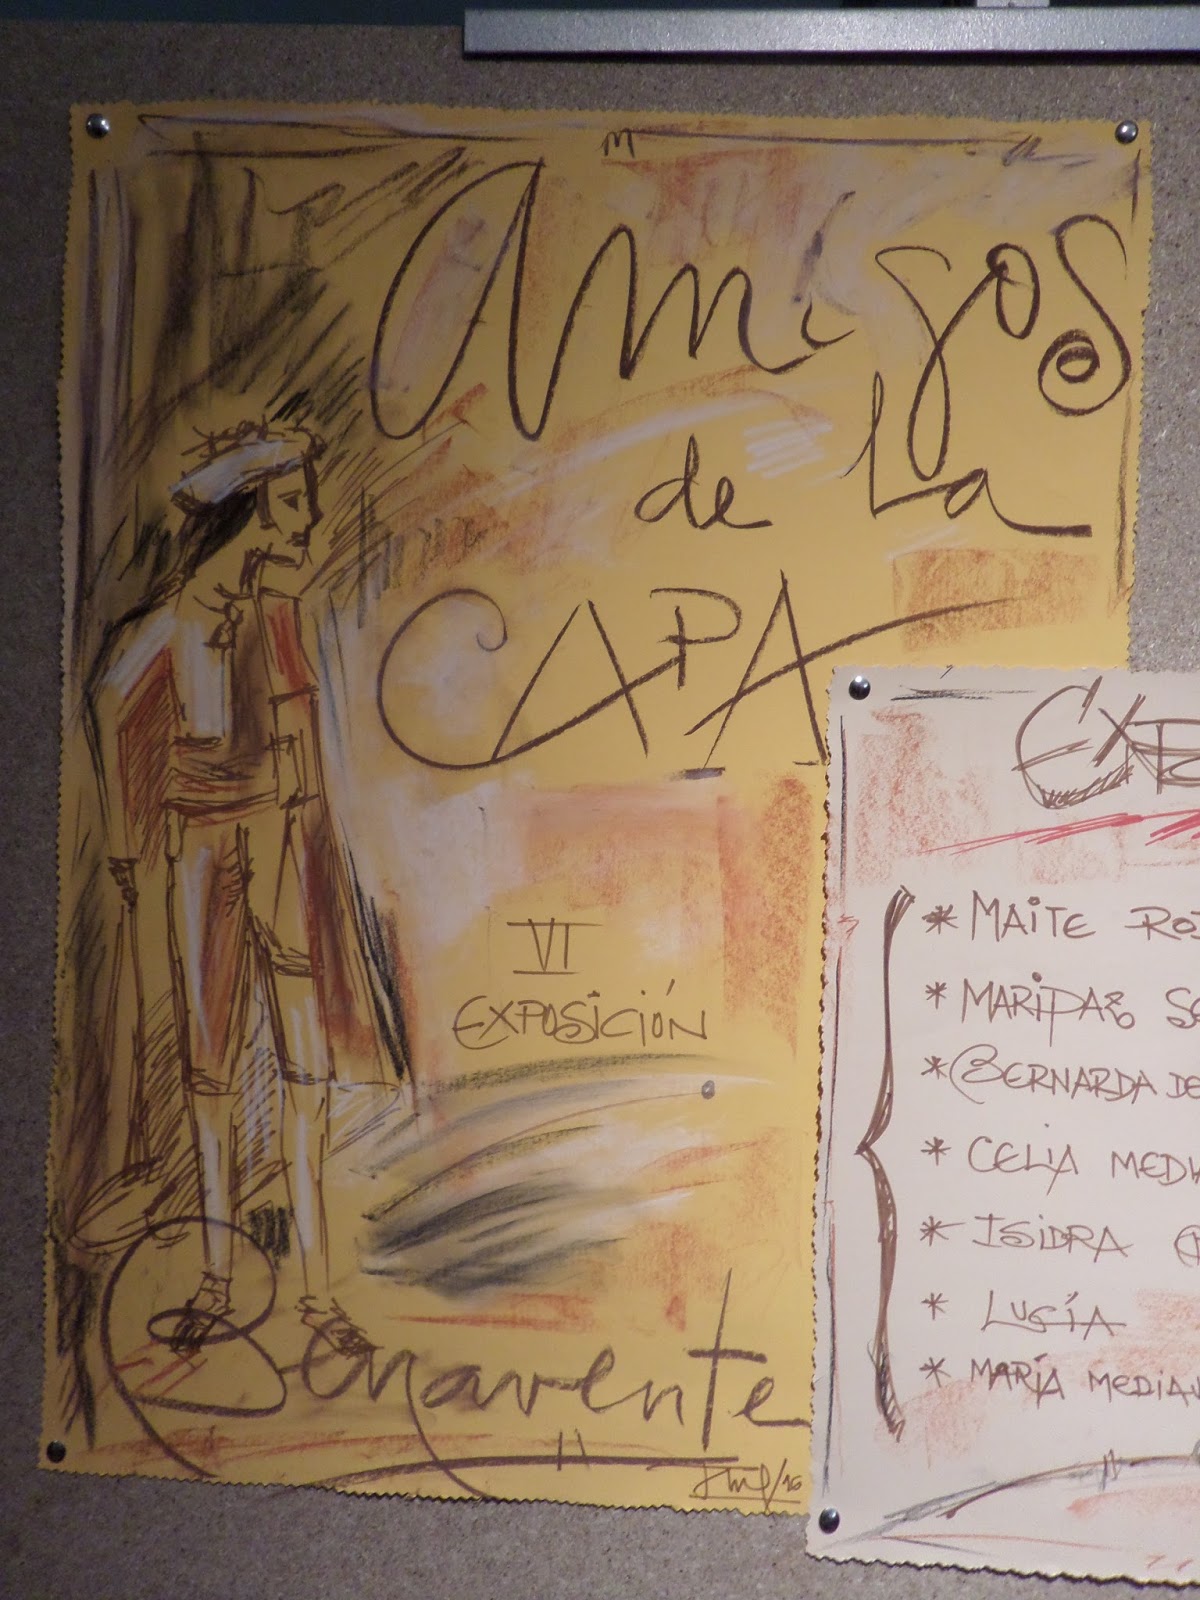 Amigos
de La
CAPA
VI
EXPOSICIÓN
Benavente
/16
* MAITE
* MARIPAZ
* BERNARDA DE
* CELIA
* ISIDRA
* LUCÍA
* MARÍA